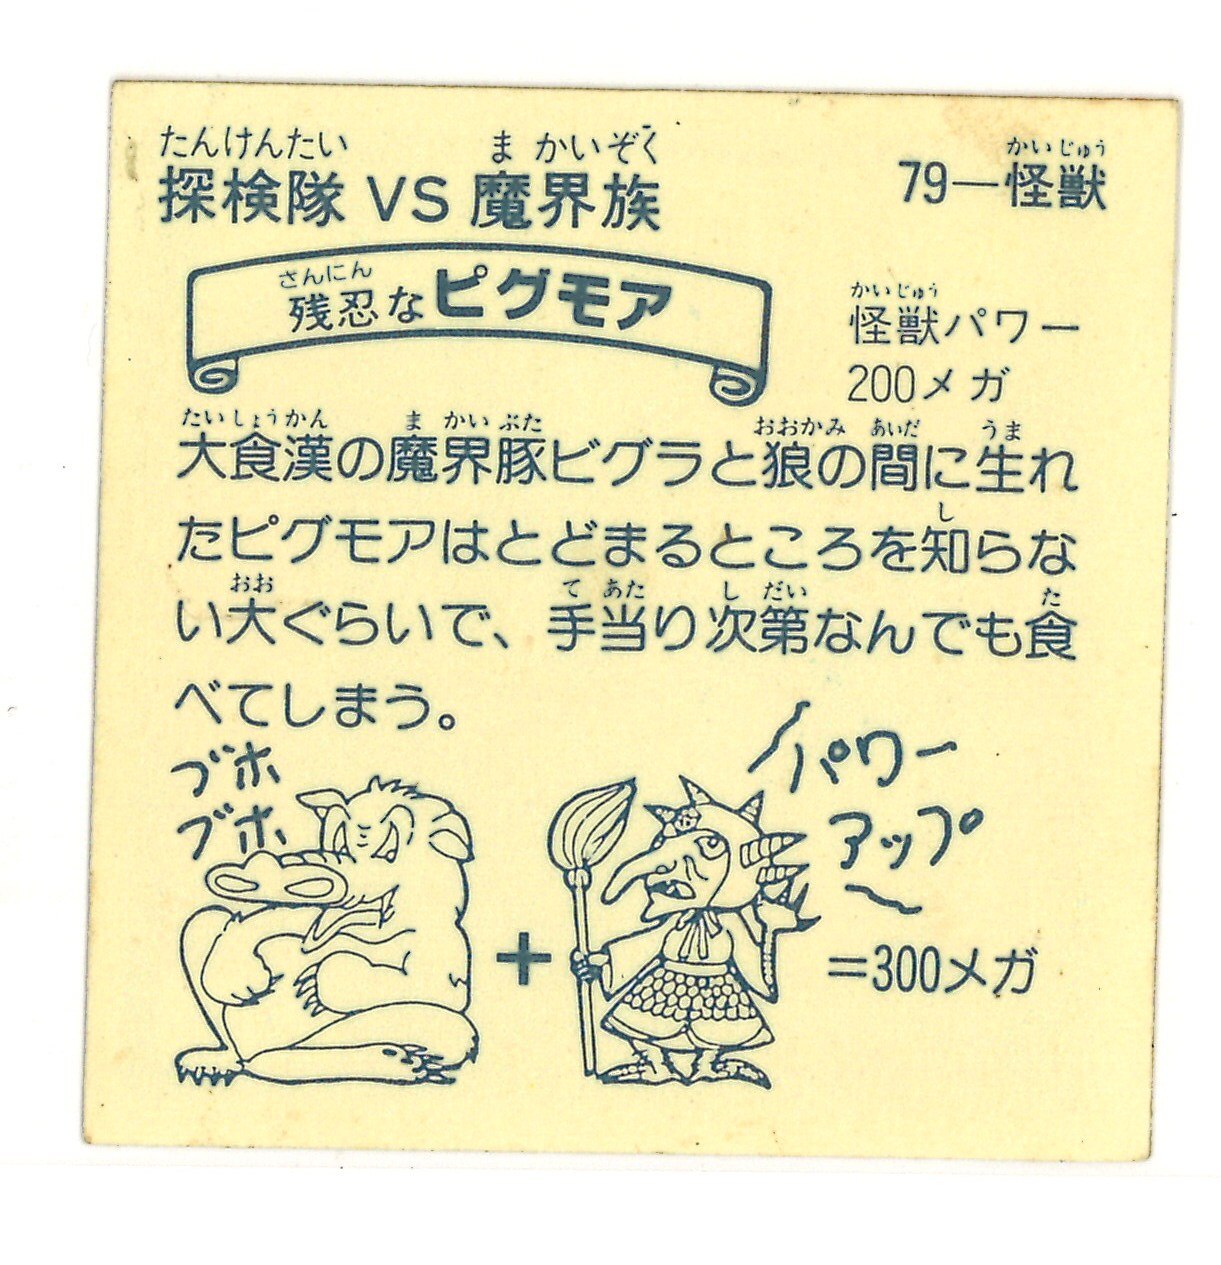 たんけんたい まかいぞく
探検隊 VS 魔界族
かいじゅう
79―怪獣
さんにん
残忍なピグモア
かいじゅう
怪獣パワー
200メガ
たいしょうかん ま かい ぶた おおかみ あいだ うま
大食漢の魔界豚ビグラと狼の間に生れ
し
たピグモアはとどまるところを知らな
おお て あた し だい た
い大ぐらいで、手当り次第なんでも食
べてしまう。
ブホ
ブホ
パワー
アップ
〜
+
=300メガ